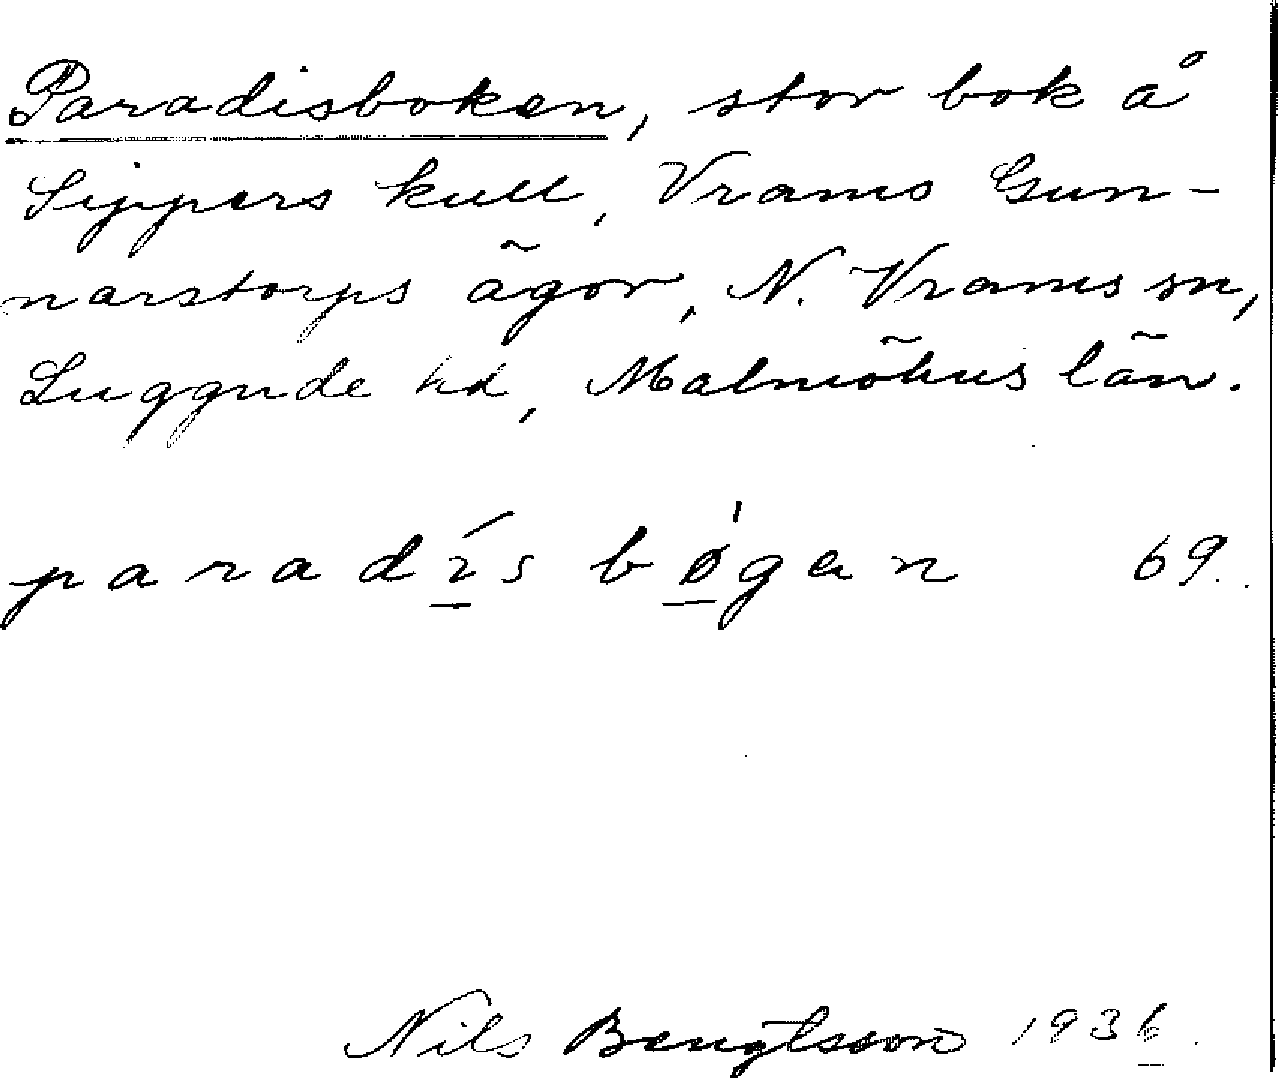 Paradisboken, stor bok å
Sippers kull, Vrams Gun-
narstorps ägor, N. Vrams sn,
Luggude hd, Malmöhus län.
paradis bøgen 69.
Nils Bengtsson 1936.